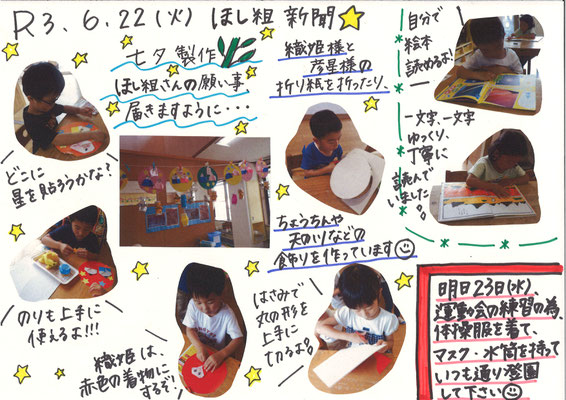 R3.6.22(火) ほし組 新聞
七夕 製作
ほし組さんの願い事
届きますように・・・
織姫様と
彦星様の
折り紙を折ったり、
自分で
絵本
読めるよ!
一文字、一文字
ゆっくり、
丁寧に
読んで
いました。
どこに
星を貼ろうかな?
ちょうちんや
天の川などの
飾りを作っています
のりも上手に
使えるよ!!!
織姫は、
赤色の着物に
するぞ!
はさみで
丸の形を
上手に
切るよ。
明日23日(水)、
運動会の練習の為、
体操服を着て、
マスク・水筒を持って
いつも通り登園
して下さい